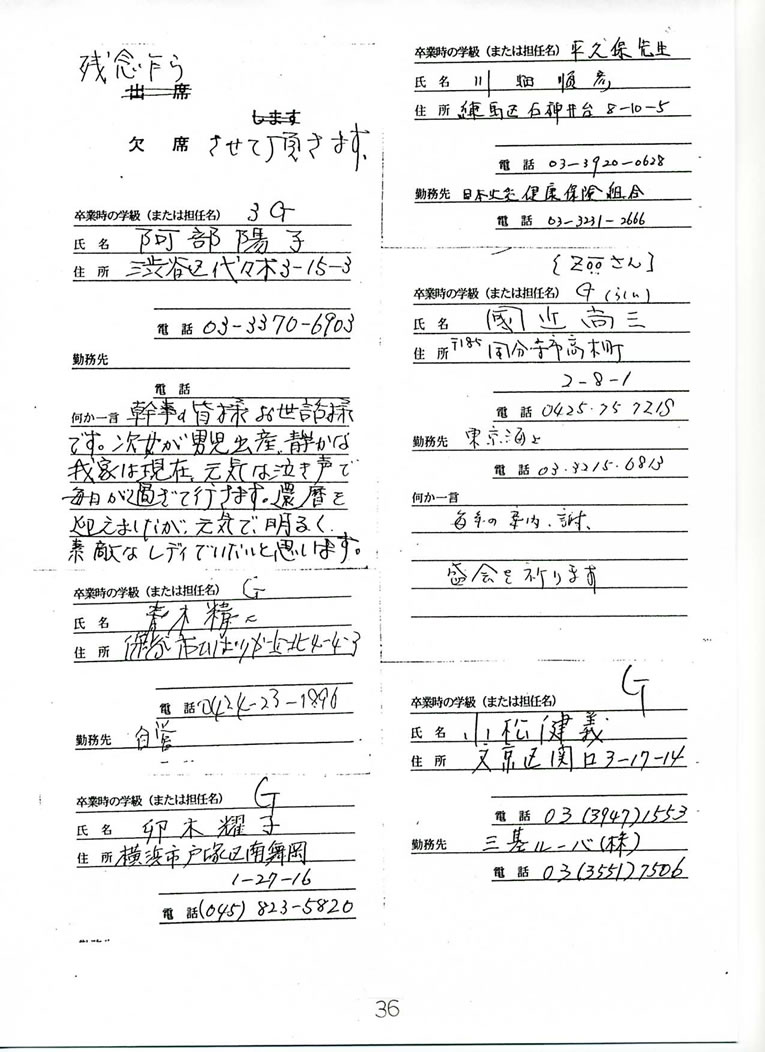 残念乍ら
出席
します
欠席 させて頂きます。
卒業時の学級（または担任名） 3G
氏名 阿部陽子
住所 渋谷区代々木3-15-3
電話 03-3370-6903
勤務先
電話
何か一言 幹事の皆様お世話様
です。次女が男児出産、静かな
我家は現在、元気な泣き声で
毎日が過ぎて行きます。還暦を
迎えましたが、元気で、明るく、
素敵なレディでいたいと思います。
卒業時の学級（または担任名） G
氏名 青木
住所 保谷市ひばりが丘北4-4-3
電話 0424-23-1896
勤務先 自営
卒業時の学級（または担任名） G
氏名 卯木耀子
住所 横浜市戸塚区南舞岡
1-27-16
電話 (045) 823-5820
卒業時の学級（または担任名） 平久保先生
氏名 川畑順彦
住所 練馬区石神井台 8-10-5
電話 03-3920-0628
勤務先 日本火災健康保険組合
電話 03-3231-2666
卒業時の学級（または担任名） G
氏名 國近尚三
住所 〒185 国分寺市高木町
2-8-1
電話 0425-75-7215
勤務先 東京海上
電話 03-3215-6813
何か一言
毎年の案内、謝、
盛会を祈ります
卒業時の学級（または担任名） G
氏名 小松健義
住所 文京区関口3-17-14
電話 03(3947)1553
勤務先 三基ルーバ(株)
電話 03(3551)7506
36